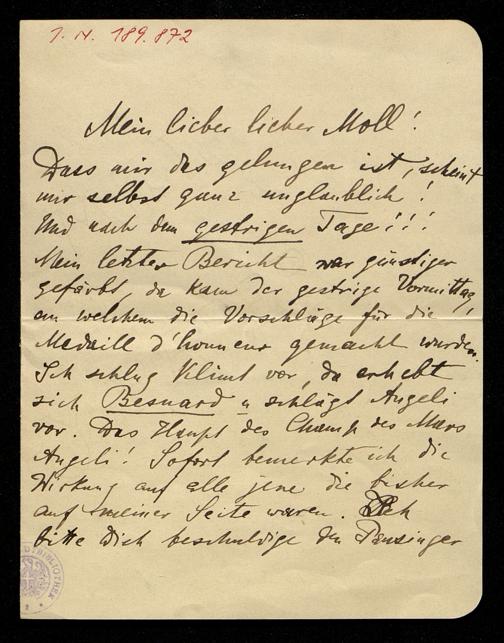 J. N. 189.872
Mein lieber lieber Moll!
Dass mir das gelungen ist, scheint
mir selbst ganz unglaublich!
Und nach dem gestrigen Tage!!!
Mein letzter Bericht war günstiger
gefärbt, da kam der gestrige Vormittag,
an welchem die Vorschläge für die
Medaill d'honneur gemacht wurden.
Ich schlug Klimt vor, da erhebt
sich Besnard u schlägt Angeli
vor. Das Haupt des Champ des Mars
Angeli! Sofort bemerkte ich die
Wirkung auf alle jene die bisher
auf meiner Seite waren. Ich
bitte Dich beschuldige den
BIBLIOTHEK